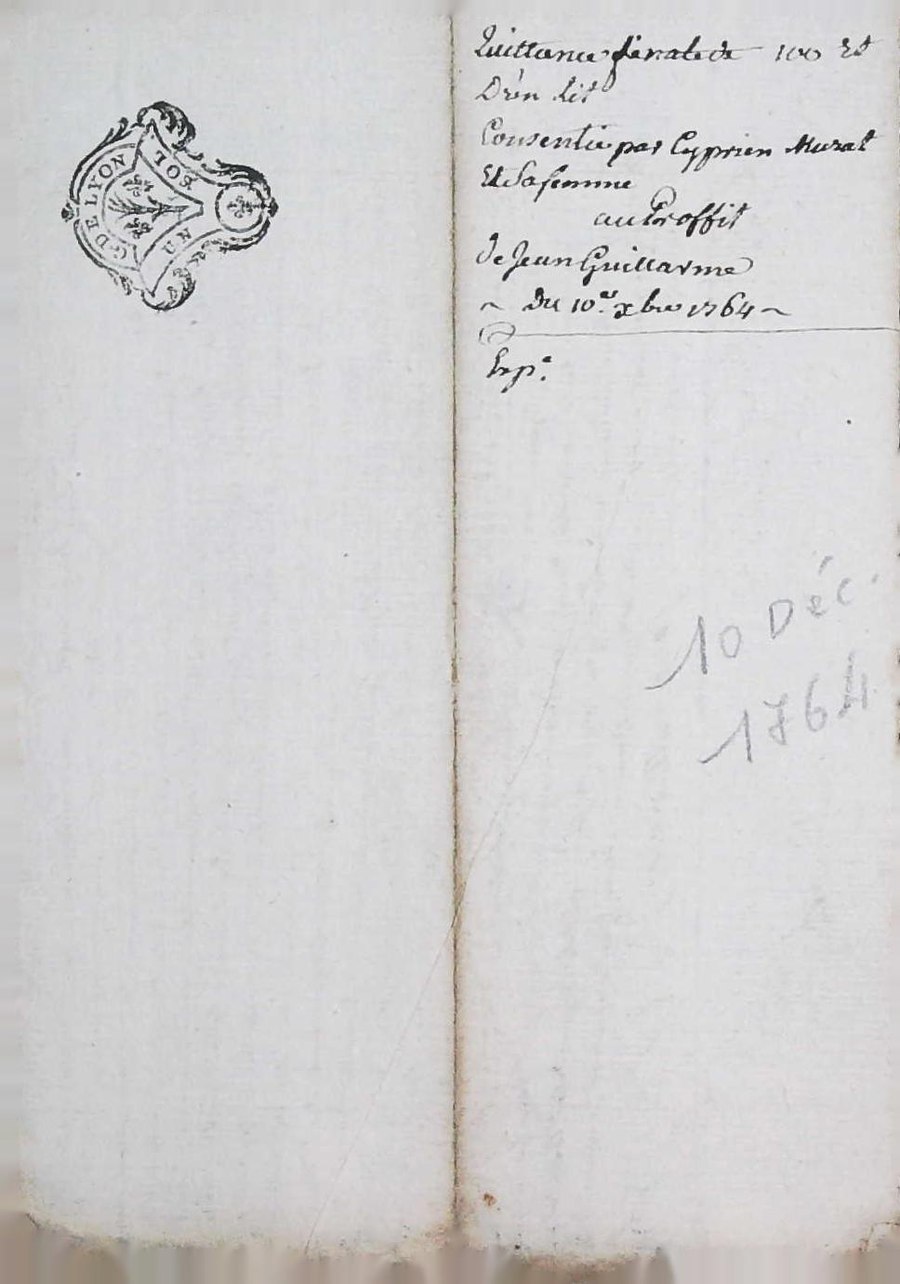 G. DE LYON
UN SOL
Quittance finale de 100 Lt
D'un lit
Consentie par Cyprien Murat
Et Sa femme
au Proffit
de Jean Guillarme
~ Du 10.e xbre 1764 ~
Exp.e
10 Déc.
1764